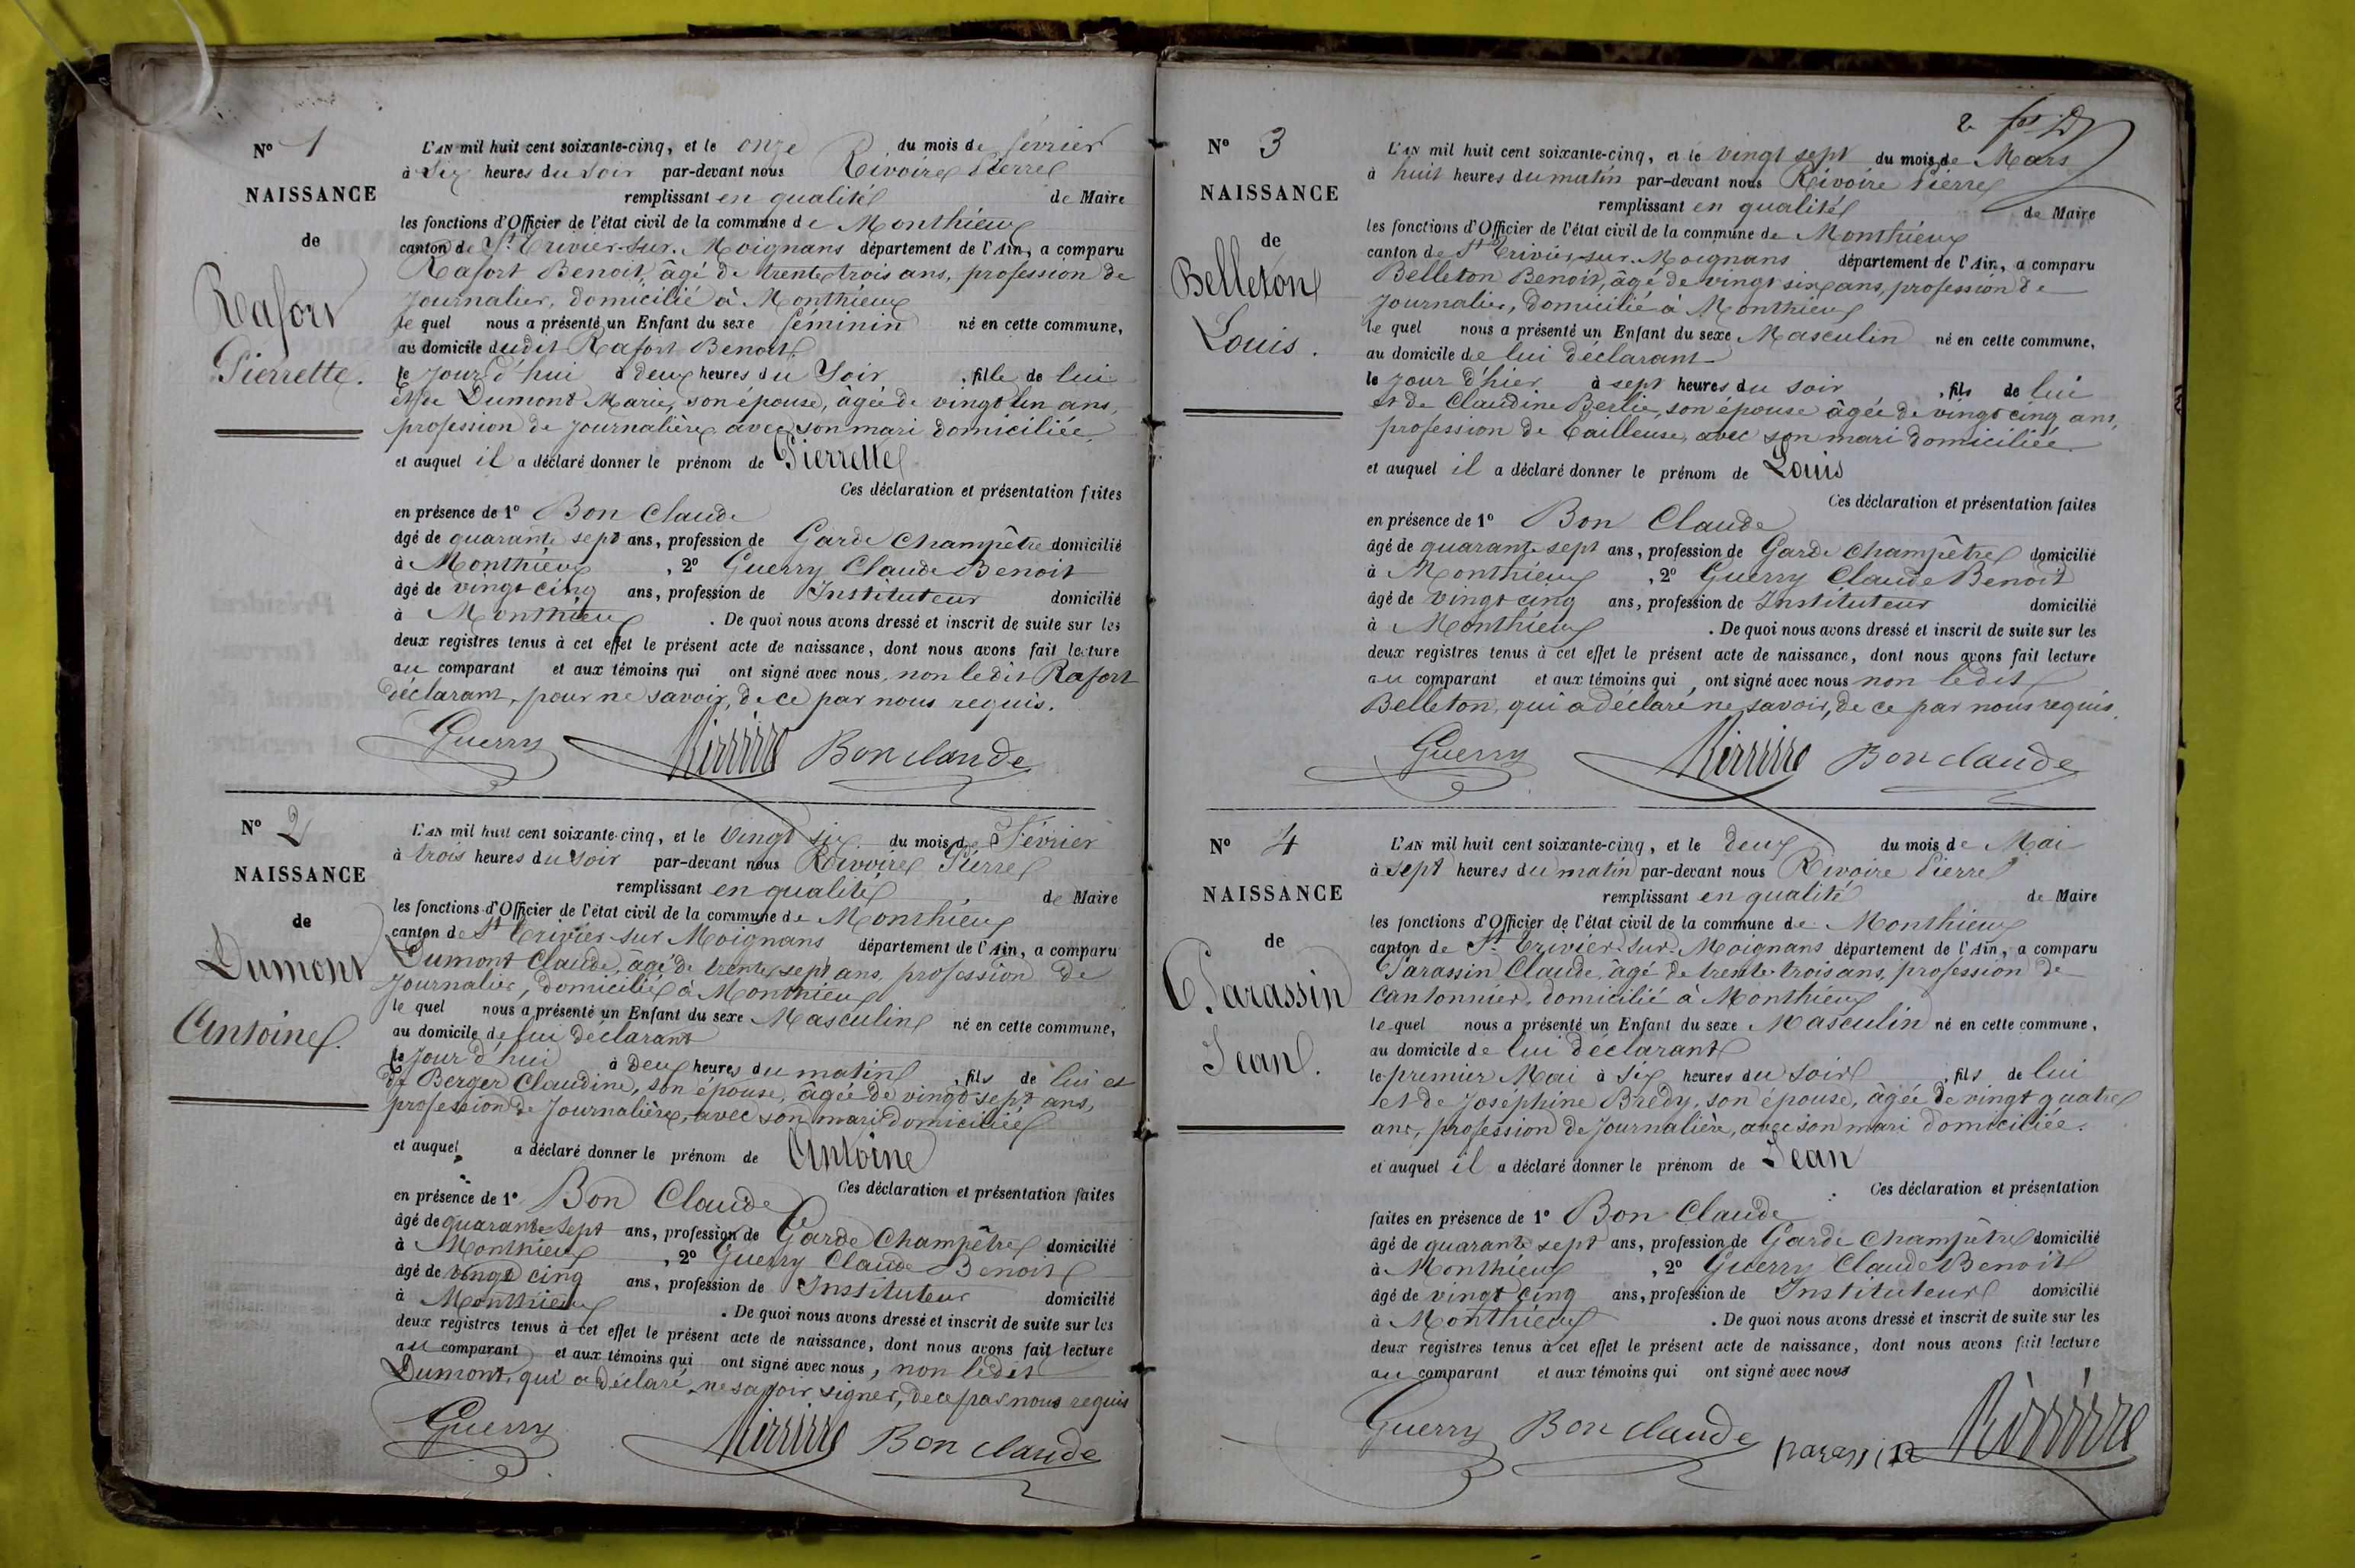 N° 1
NAISSANCE
de
Rafort
Pierrette.
L'AN mil huit cent soixante-cinq, et le onze du mois de février
à Six heures du Soir par-devant nous Rivoire Pierre
remplissant en qualité de Maire
les fonctions d'Officier de l'état civil de la commune de Monthieux
canton de St Trivier-sur-Moignans département de l'Ain, a comparu
Rafort Benoit, âgé de trente trois ans, profession de
Journalier, domicilié à Monthieux
le quel nous a présenté un Enfant du sexe féminin né en cette commune,
au domicile dudit Rafort Benoit,
le jour d'hui à deux heures du Soir, fille de lui
et de Dumont Marie, son épouse, âgée de vingt un ans,
profession de Journalière avec son mari domiciliée
et auquel il a déclaré donner le prénom de Pierrette
Ces déclaration et présentation faites
en présence de 1° Bon Claude
âgé de quarante sept ans, profession de Garde Champêtre domicilié
à Monthieux, 2° Guerry Claude Benoit
âgé de vingt cinq ans, profession de Instituteur domicilié
à Monthieux. De quoi nous avons dressé et inscrit de suite sur les
deux registres tenus à cet effet le présent acte de naissance, dont nous avons fait lecture
au comparant et aux témoins qui ont signé avec nous, non ledit Rafort
déclarant, pour ne savoir, de ce par nous requis.
Guerry Rivoire Bon claude
N° 2
NAISSANCE
de
Dumont
Antoine.
L'AN mil huit cent soixante-cinq, et le vingt six du mois de Février
à trois heures du soir par-devant nous Rivoire Pierre
remplissant en qualité de Maire
les fonctions d'Officier de l'état civil de la commune de Monthieux
canton de St Trivier sur Moignans département de l'Ain, a comparu
Dumont Claude, âgé de trente sept ans, profession de
Journalier, domicilié à Monthieux
le quel nous a présenté un Enfant du sexe Masculin né en cette commune,
au domicile de lui déclarant
le jour d'hui à deux heures du matin, fils de lui et
de Berger Claudine, son épouse, âgée de vingt sept ans,
profession de Journalière, avec son mari domiciliée
et auquel a déclaré donner le prénom de Antoine
Ces déclaration et présentation faites
en présence de 1° Bon Claude
âgé de quarante sept ans, profession de Garde Champêtre domicilié
à Monthieux, 2° Guerry Claude Benoit
âgé de vingt cinq ans, profession de Instituteur domicilié
à Monthieux. De quoi nous avons dressé et inscrit de suite sur les
deux registres tenus à cet effet le présent acte de naissance, dont nous avons fait lecture
au comparant et aux témoins qui ont signé avec nous, non ledit
Dumont, qui a déclaré ne savoir signer, de ce par nous requis
Guerry Rivoire Bon claude
2
N° 3
NAISSANCE
de
Belleton
Louis.
L'AN mil huit cent soixante-cinq, et le vingt sept du mois de Mars
à huit heures du matin par-devant nous Rivoire Pierre
remplissant en qualité de Maire
les fonctions d'Officier de l'état civil de la commune de Monthieux
canton de St Trivier-sur-Moignans département de l'Ain, a comparu
Belleton Benoit, âgé de vingt six ans, profession de
Journalier, domicilié à Monthieux
le quel nous a présenté un Enfant du sexe Masculin né en cette commune,
au domicile de lui déclarant
le jour d'hier à sept heures du soir, fils de lui
et de Claudine Berlie, son épouse âgée de vingt cinq ans,
profession de Tailleuse, avec son mari domiciliée
et auquel il a déclaré donner le prénom de Louis
Ces déclaration et présentation faites
en présence de 1° Bon Claude
âgé de quarante sept ans, profession de Garde Champêtre domicilié
à Monthieux, 2° Guerry Claude Benoit
âgé de vingt cinq ans, profession de Instituteur domicilié
à Monthieux. De quoi nous avons dressé et inscrit de suite sur les
deux registres tenus à cet effet le présent acte de naissance, dont nous avons fait lecture
au comparant et aux témoins qui ont signé avec nous non ledit
Belleton, qui a déclaré ne savoir, de ce par nous requis.
Guerry Rivoire Bon claude
N° 4
NAISSANCE
de
Parassin
Jean.
L'AN mil huit cent soixante-cinq, et le deux du mois de Mai
à sept heures du matin par-devant nous Rivoire Pierre
remplissant en qualité de Maire
les fonctions d'Officier de l'état civil de la commune de Monthieux
canton de St Trivier sur Moignans département de l'Ain, a comparu
Parassin Claude, âgé de trente trois ans, profession de
Cantonnier, domicilié à Monthieux
le quel nous a présenté un Enfant du sexe Masculin né en cette commune,
au domicile de lui déclarant
le premier Mai à six heures du soir, fils de lui
et de Joséphine Brédy, son épouse, âgée de vingt quatre
ans, profession de Journalière, avec son mari domiciliée.
et auquel il a déclaré donner le prénom de Jean
Ces déclaration et présentation
faites en présence de 1° Bon Claude
âgé de quarante sept ans, profession de Garde Champêtre domicilié
à Monthieux, 2° Guerry Claude Benoit
âgé de vingt cinq ans, profession de Instituteur domicilié
à Monthieux. De quoi nous avons dressé et inscrit de suite sur les
deux registres tenus à cet effet le présent acte de naissance, dont nous avons fait lecture
au comparant et aux témoins qui ont signé avec nous
Guerry Bon claude parassin Rivoire